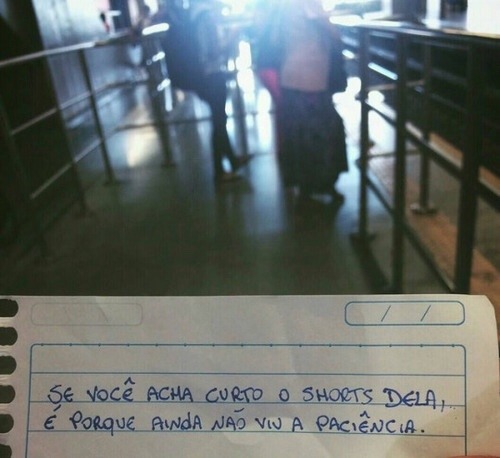 SE VOCÊ ACHA CURTO O SHORTS DELA,
É PORQUE AINDA NÃO VIU A PACIÊNCIA.